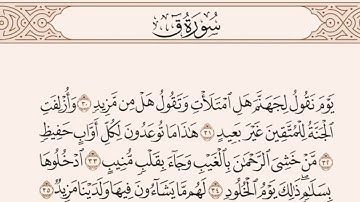 سُورَةُ ق
يَوْمَ نَقُولُ لِجَهَنَّمَ هَلِ ٱمْتَلَأْتِ وَتَقُولُ هَلْ مِن مَّزِيدٍ ٣٠ وَأُزْلِفَتِ
ٱلْجَنَّةُ لِلْمُتَّقِينَ غَيْرَ بَعِيدٍ ٣١ هَٰذَا مَا تُوعَدُونَ لِكُلِّ أَوَّابٍ حَفِيظٍ
٣٢ مَّنْ خَشِىَ ٱلرَّحْمَٰنَ بِٱلْغَيْبِ وَجَآءَ بِقَلْبٍ مُّنِيبٍ ٣٣ ٱدْخُلُوهَا
بِسَلَٰمٍ ذَٰلِكَ يَوْمُ ٱلْخُلُودِ ٣٤ لَهُم مَّا يَشَآءُونَ فِيهَا وَلَدَيْنَا مَزِيدٌ ٣٥